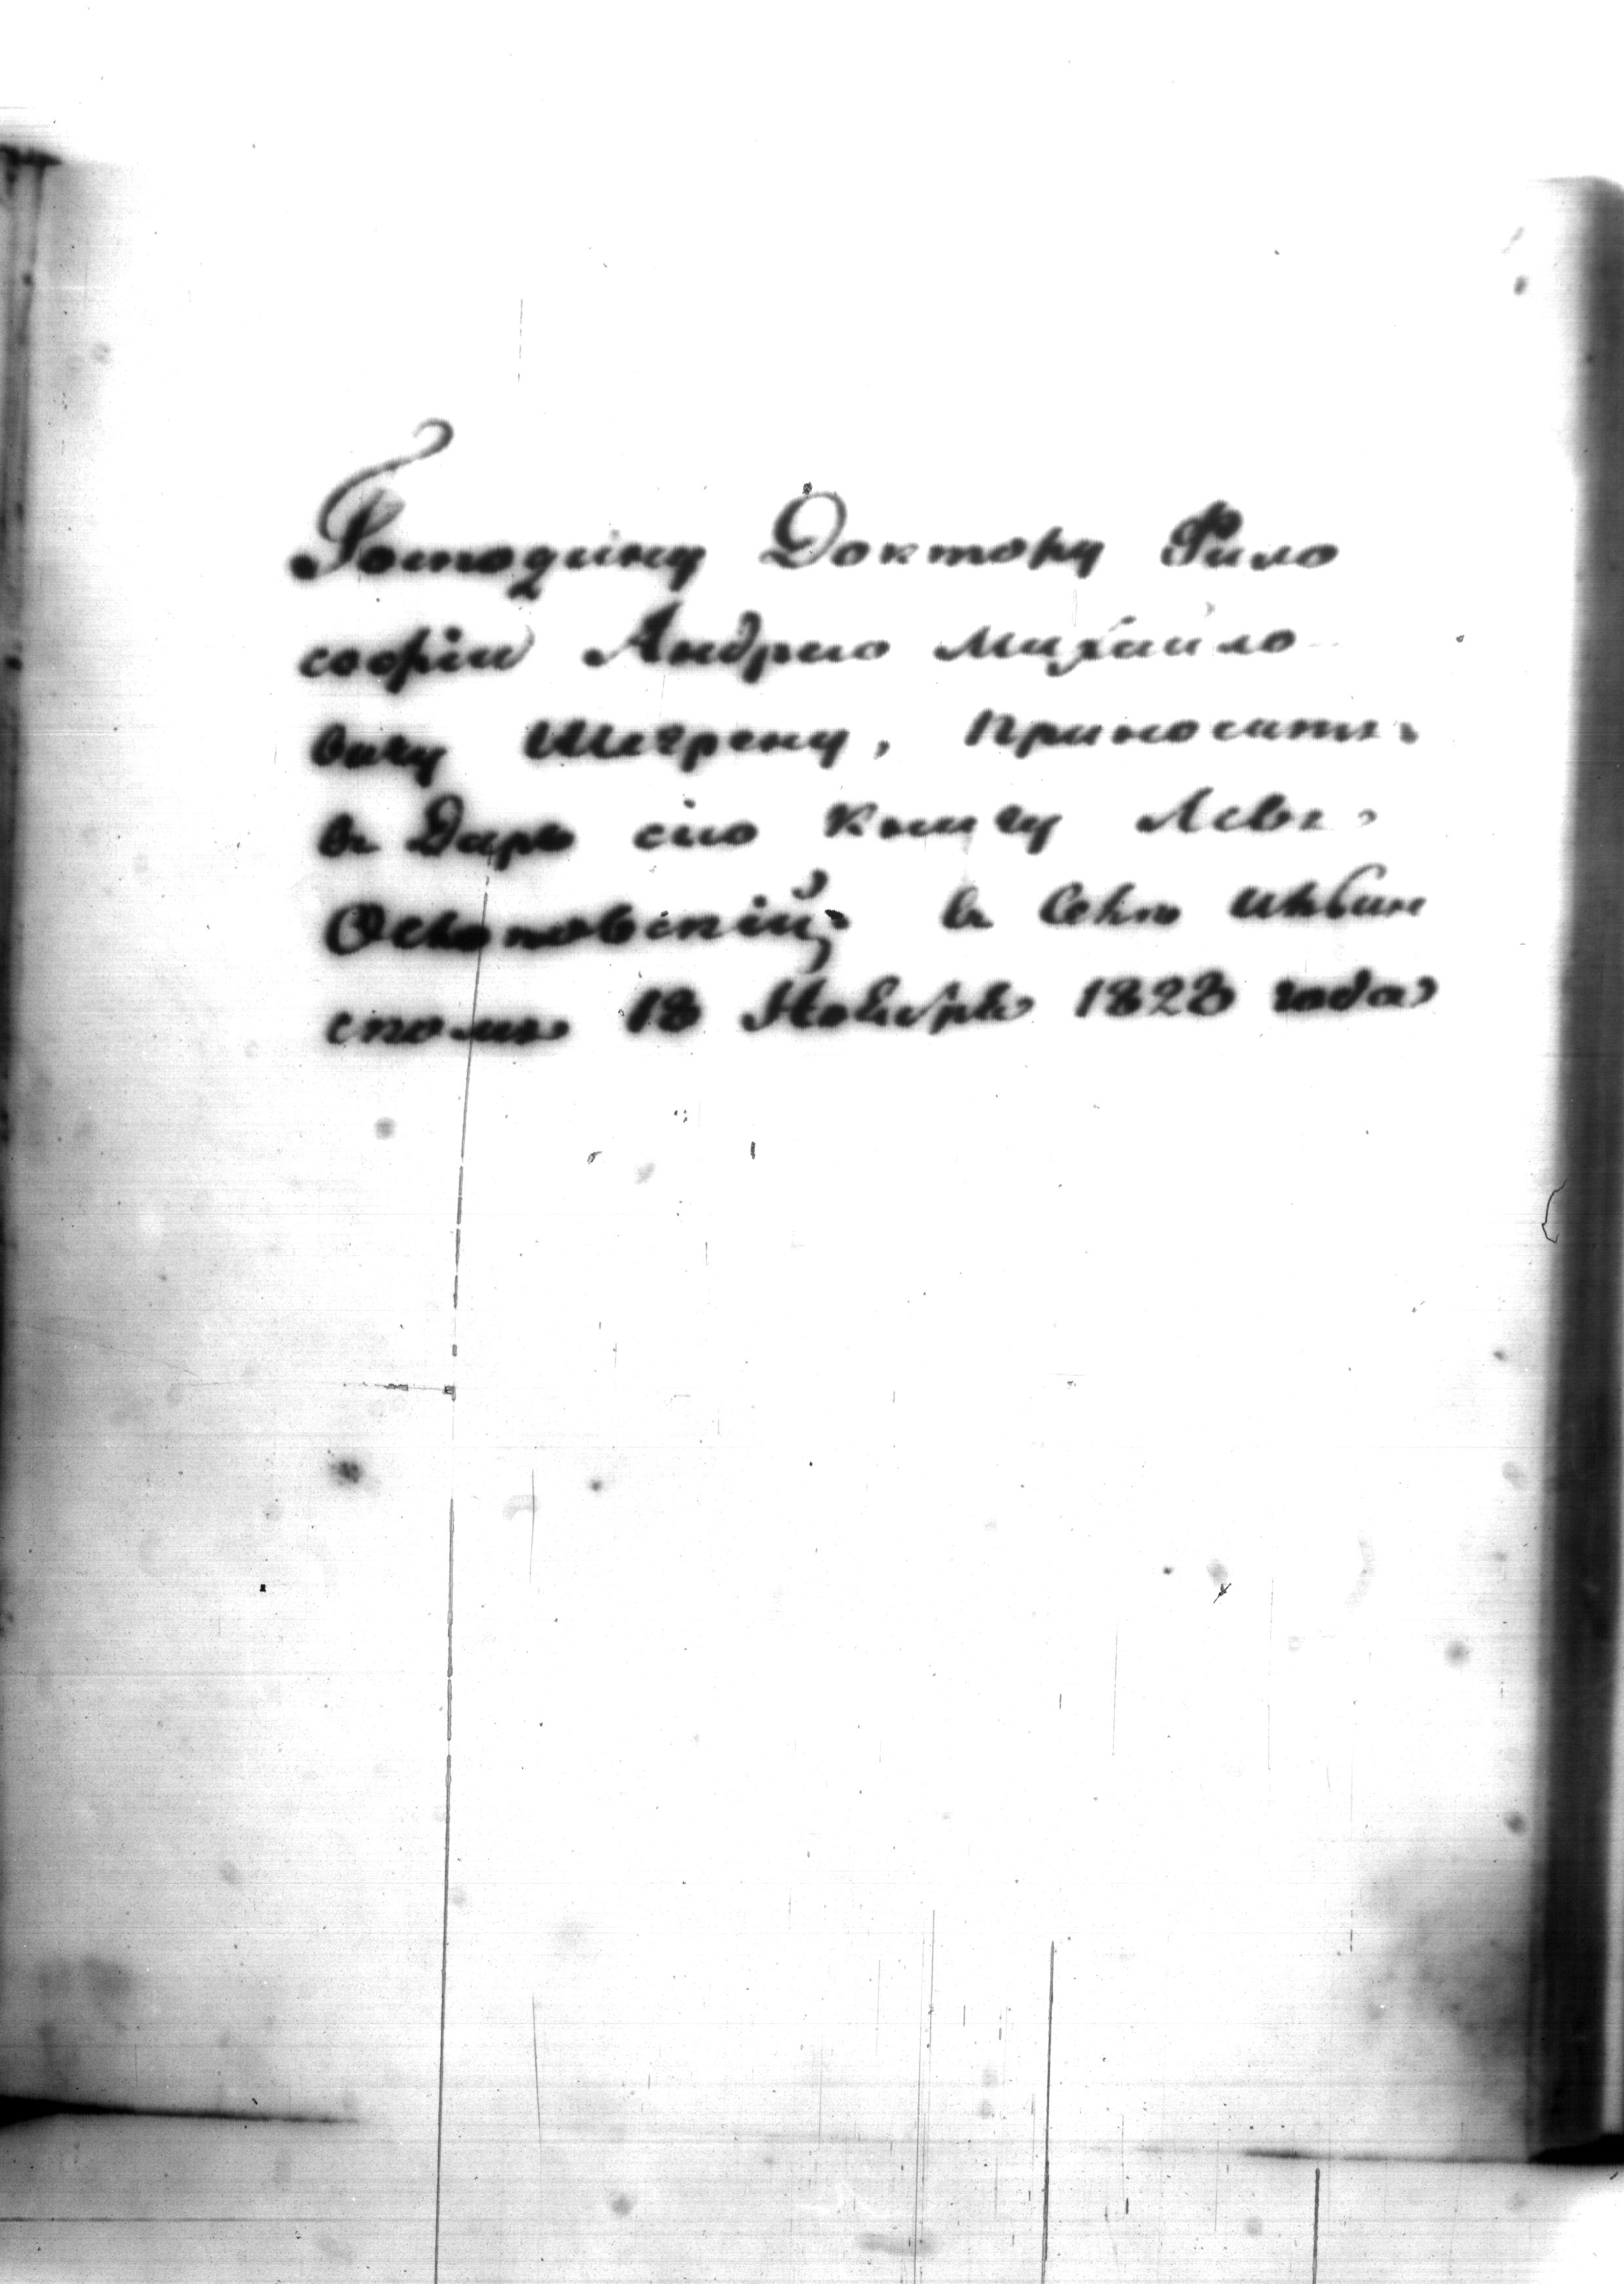 Господину Доктору Фило
софіи Андрею Михайло
вичу Шегрену, приносить
въ Даръ сію книгу Левъ
въ Селѣ
скомъ 18 Ноября 1828 года